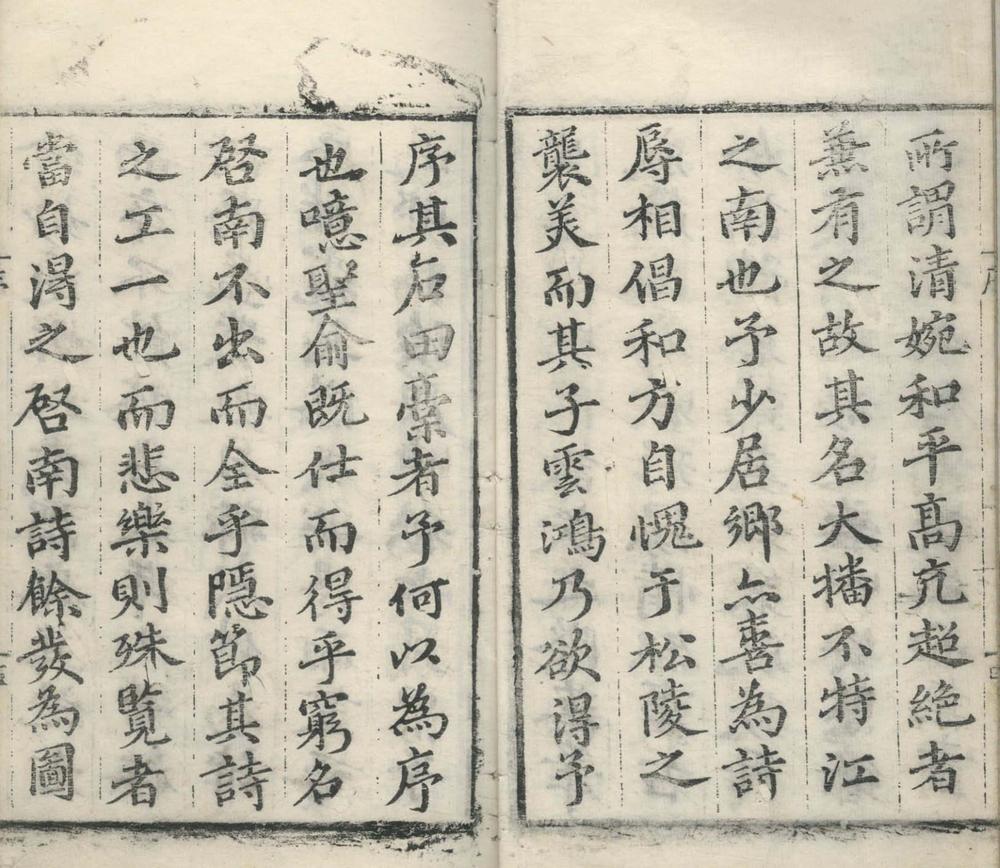 所謂清婉和平高亢超絶者
蕪有之故其名大播不特江
之南也予少居鄉亦喜為詩
辱相倡和方自愧于松陵之
襲美而其子雲鴻乃欲得予
序其石田稾者予何以為序
也噫聖俞既仕而得乎窮名
啓南不出而全乎隱節其詩
之工一也而悲樂則殊覽者
當自得之啓南詩餘發為圖